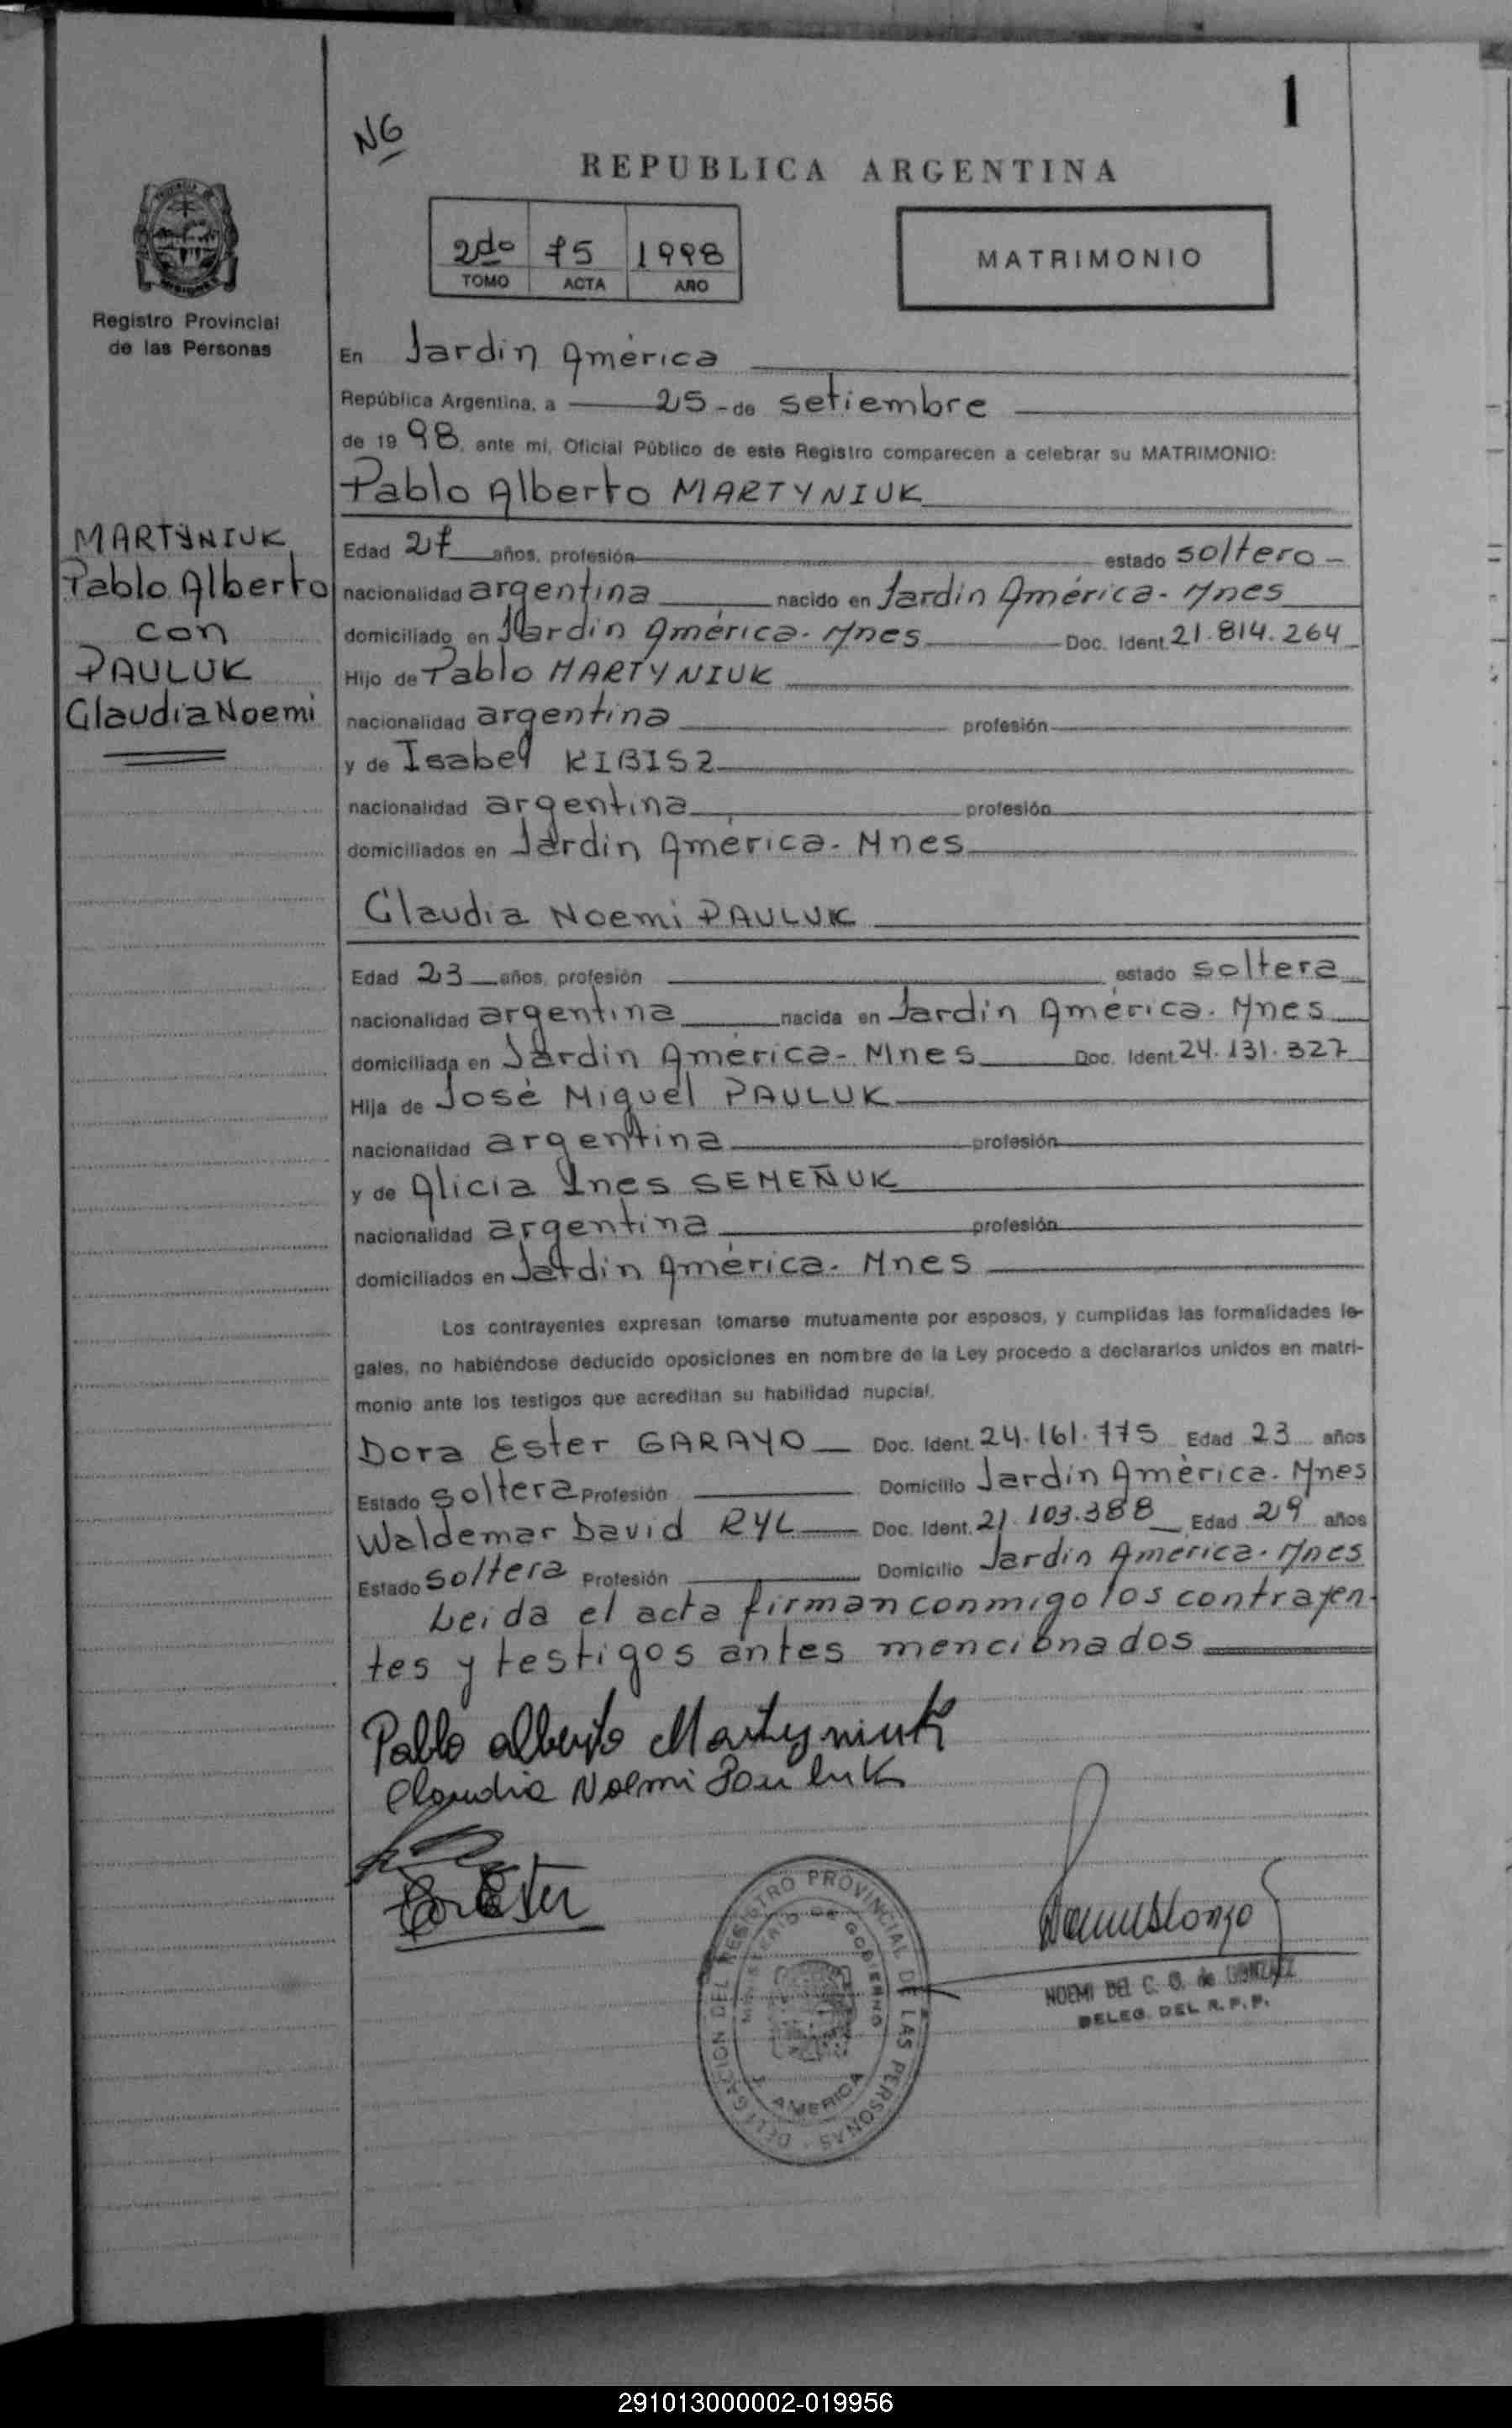 1
NG
REPUBLICA ARGENTINA
2do 75 1998
TOMO ACTA AÑO
MATRIMONIO
Registro Provincial
de las Personas
MARTYNIUK,
Pablo Alberto
con
PAULUK
Claudia Noemi
En Jardín América
República Argentina, a 25 - de setiembre
de 1998, ante mí, Oficial Público de este Registro comparecen a celebrar su MATRIMONIO:
Pablo Alberto MARTYNIUK
Edad 27 años, profesión estado soltero -
nacionalidad argentina nacido en Jardín América - Mnes
domiciliado en Jardín América - Mnes Doc. Ident. 21.814.264
Hijo de Pablo MARTYNIUK
nacionalidad argentina profesión
y de Isabel KIBISZ
nacionalidad argentina profesión
domiciliados en Jardín América - Mnes
Claudia Noemi PAULUK
Edad 23 años, profesión estado soltera
nacionalidad argentina nacida en Jardín América - Mnes
domiciliada en Jardín América - Mnes Doc. Ident. 24.131.327
Hija de José Miguel PAULUK
nacionalidad argentina profesión
y de Alicia Ines SEMEÑUK
nacionalidad argentina profesión
domiciliados en Jardín América - Mnes
Los contrayentes expresan tomarse mutuamente por esposos, y cumplidas las formalidades le-
gales, no habiéndose deducido oposiciones en nombre de la Ley procedo a declararlos unidos en matri-
monio ante los testigos que acreditan su habilidad nupcial.
Dora Ester GARAYO Doc. Ident. 24.161.775 Edad 23 años
Estado soltera Profesión Domicilio Jardín América - Mnes
Waldemar David RYL Doc. Ident. 21.103.388 Edad 29 años
Estado soltera Profesión Domicilio Jardín América - Mnes
Leida el acta firman conmigo los contrayen-
tes y testigos antes mencionados
Pablo Alberto Martyniuk
Claudia Noemi Pauluk
Ester
DELEGACION DEL REGISTRO PROVINCIAL DE LAS PERSONAS
MINISTERIO DE GOBIERNO
J. AMERICA
NOEMI DEL C. O. de GONZALEZ
DELEG. DEL R. P. P.
291013000002-019956